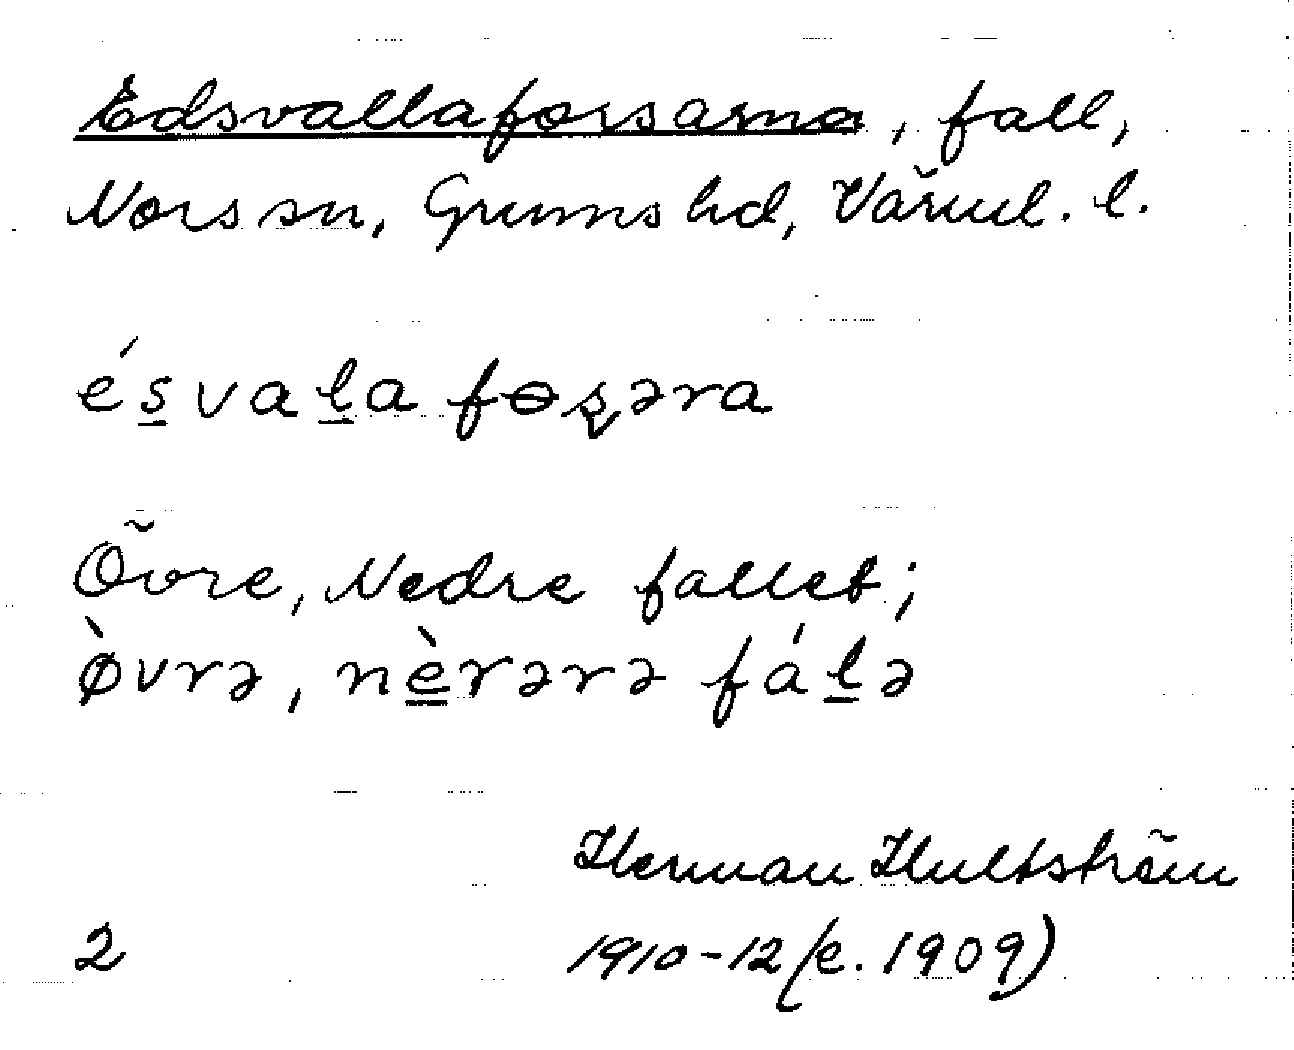 Edsvallaforsarna, fall,
Nors sn, Grums hd, Värml. l.
és̱vaḻa fɵʂəra
Övre, Nedre fallet;
ø̀vrə, nè̱rərə fáḻə
Herman Hultström
1910-12 (e. 1909)
2